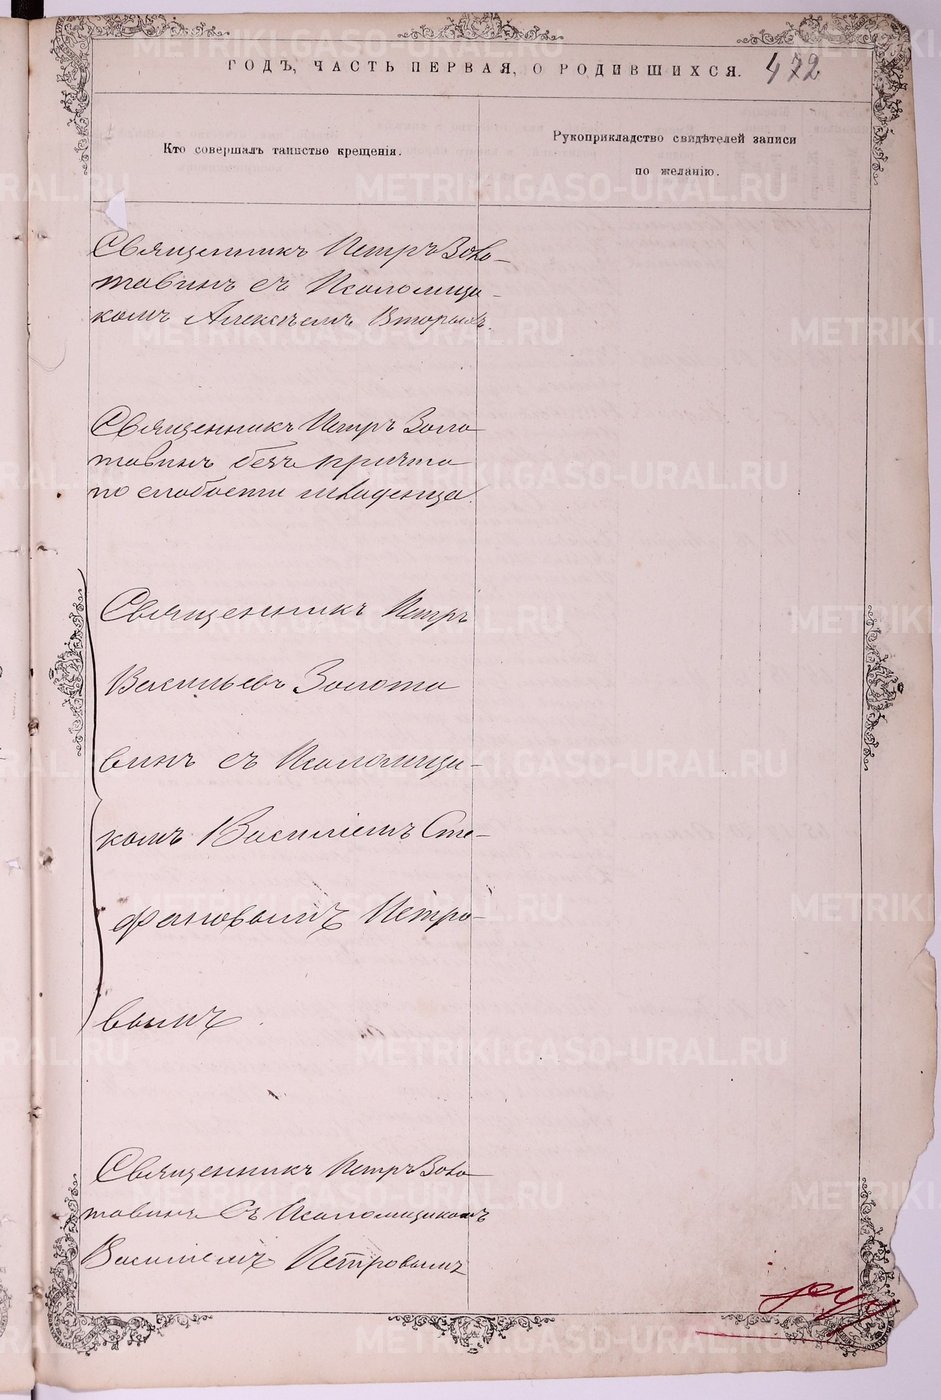 ГОДЪ, ЧАСТЬ ПЕРВАЯ, О РОДИВШИХСЯ. 472
Кто совершалъ таинство крещенія.
Рукоприкладство свидѣтелей записи
по желанію.
Священникъ Петръ Золо-
тавинъ съ Псаломщи-
комъ Алексѣемъ Вторымъ.
Священникъ Петръ Золо
тавинъ безъ причта
по слабости младенца.
Священникъ Петръ
Васильевъ Золота
винъ съ Псаломщи-
комъ Василіемъ Сте-
фановымъ Петро-
вымъ.
Священникъ Петръ Золо
тавинъ съ Псаломщикомъ
Василіемъ Петровымъ
METRIKI.GASO-URAL.RU